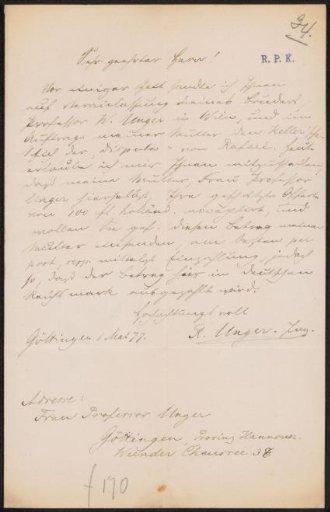 34.
R. P. K.
Sehr geehrter Herr!
Vor einiger Zeit sandte ich Ihnen
auf Veranlassung meines Bruders,
Professor W. Unger in Wien, und im
Auftrage meiner Mutter den Keller'schen
Stich der "Disputa" von Rafael. Heute
erlaube ich mir Ihnen mitzutheilen,
daß meine Mutter, Frau Professor
Unger hierselbst, Ihre gefällige Offerte
von 100 fl. holländ. acceptirt, und
wollen Sie gef. diesen Betrag meiner
Mutter einsenden, am besten per
post, resp. mittelst Einzahlung, jedoch
so, daß der Betrag hier in deutschen
Reichsmark ausgezahlt wird.
Hochachtungsvoll
Göttingen 1 Mai 77.
R. Unger. Ing.
Adresse:
Frau Professor Unger
Göttingen, Provinz Hannover.
Weender Chaussee 38
f 170